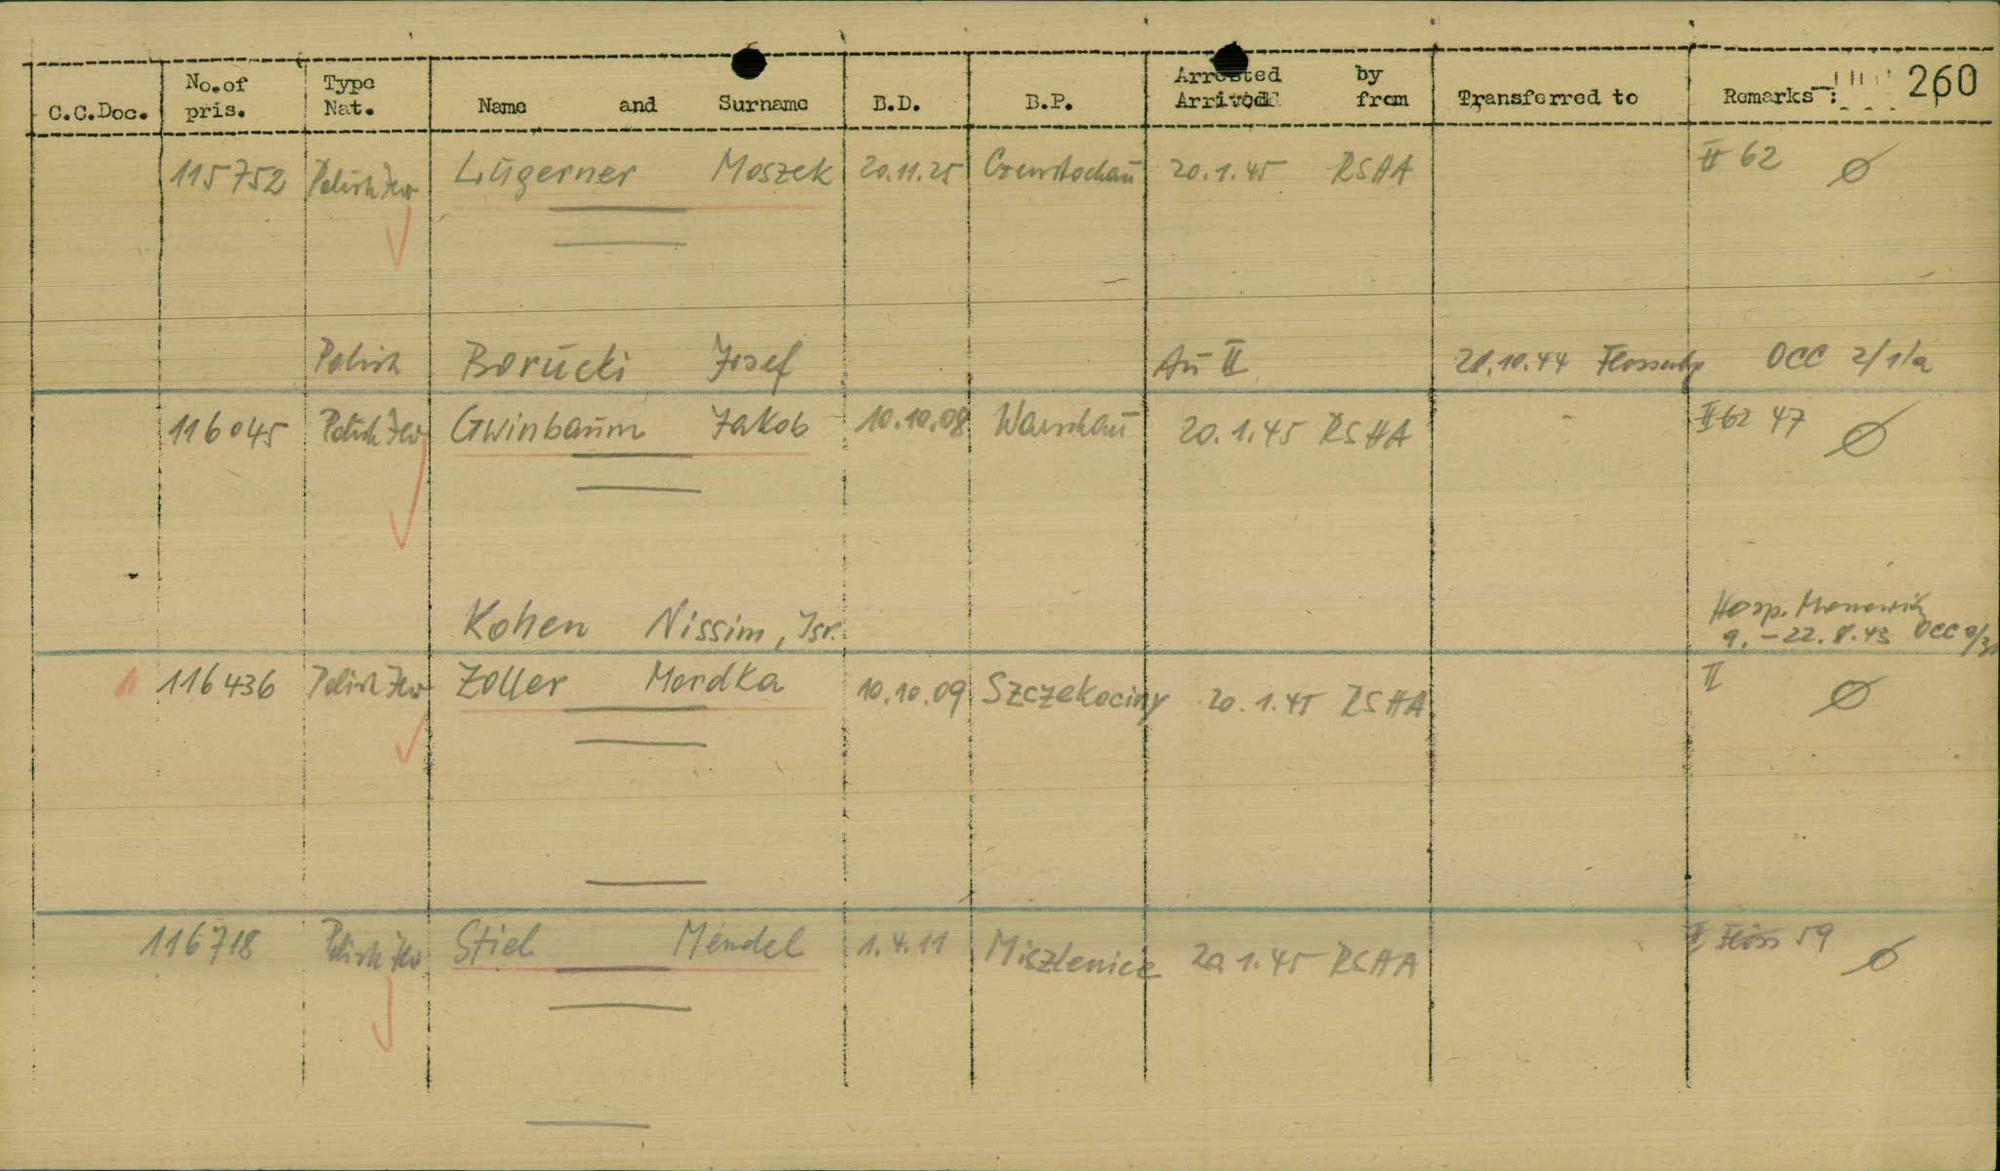 C.C.Doc. No.of pris. Type Nat. Name and Surname B.D. B.P. Arrested by Arrived from Transferred to Remarks: 260
115752 Polish Jew Lügerner Moszek 20.11.25 Czenstochaū 20.1.45 RSHA II 62 Ø
Polish Borūcki Josef Aū II 28.10.44 Flossenbg OCC 2/1/a
116045 Polish Jew Gwinbaūm Jakob 10.10.08 Warschaū 20.1.45 RSHA II 62 47 Ø
Kohen Nissim, Isr. Hosp. Monowitz
9.-22.8.43 OCC
116436 Polish Jew Zoller Mordka 10.10.09 Szczekociny 20.1.45 RSHA II Ø
116718 Polish Jew Stiel Mendel 1.4.11 Miszlenice 20.1.45 RSHA 59 Ø